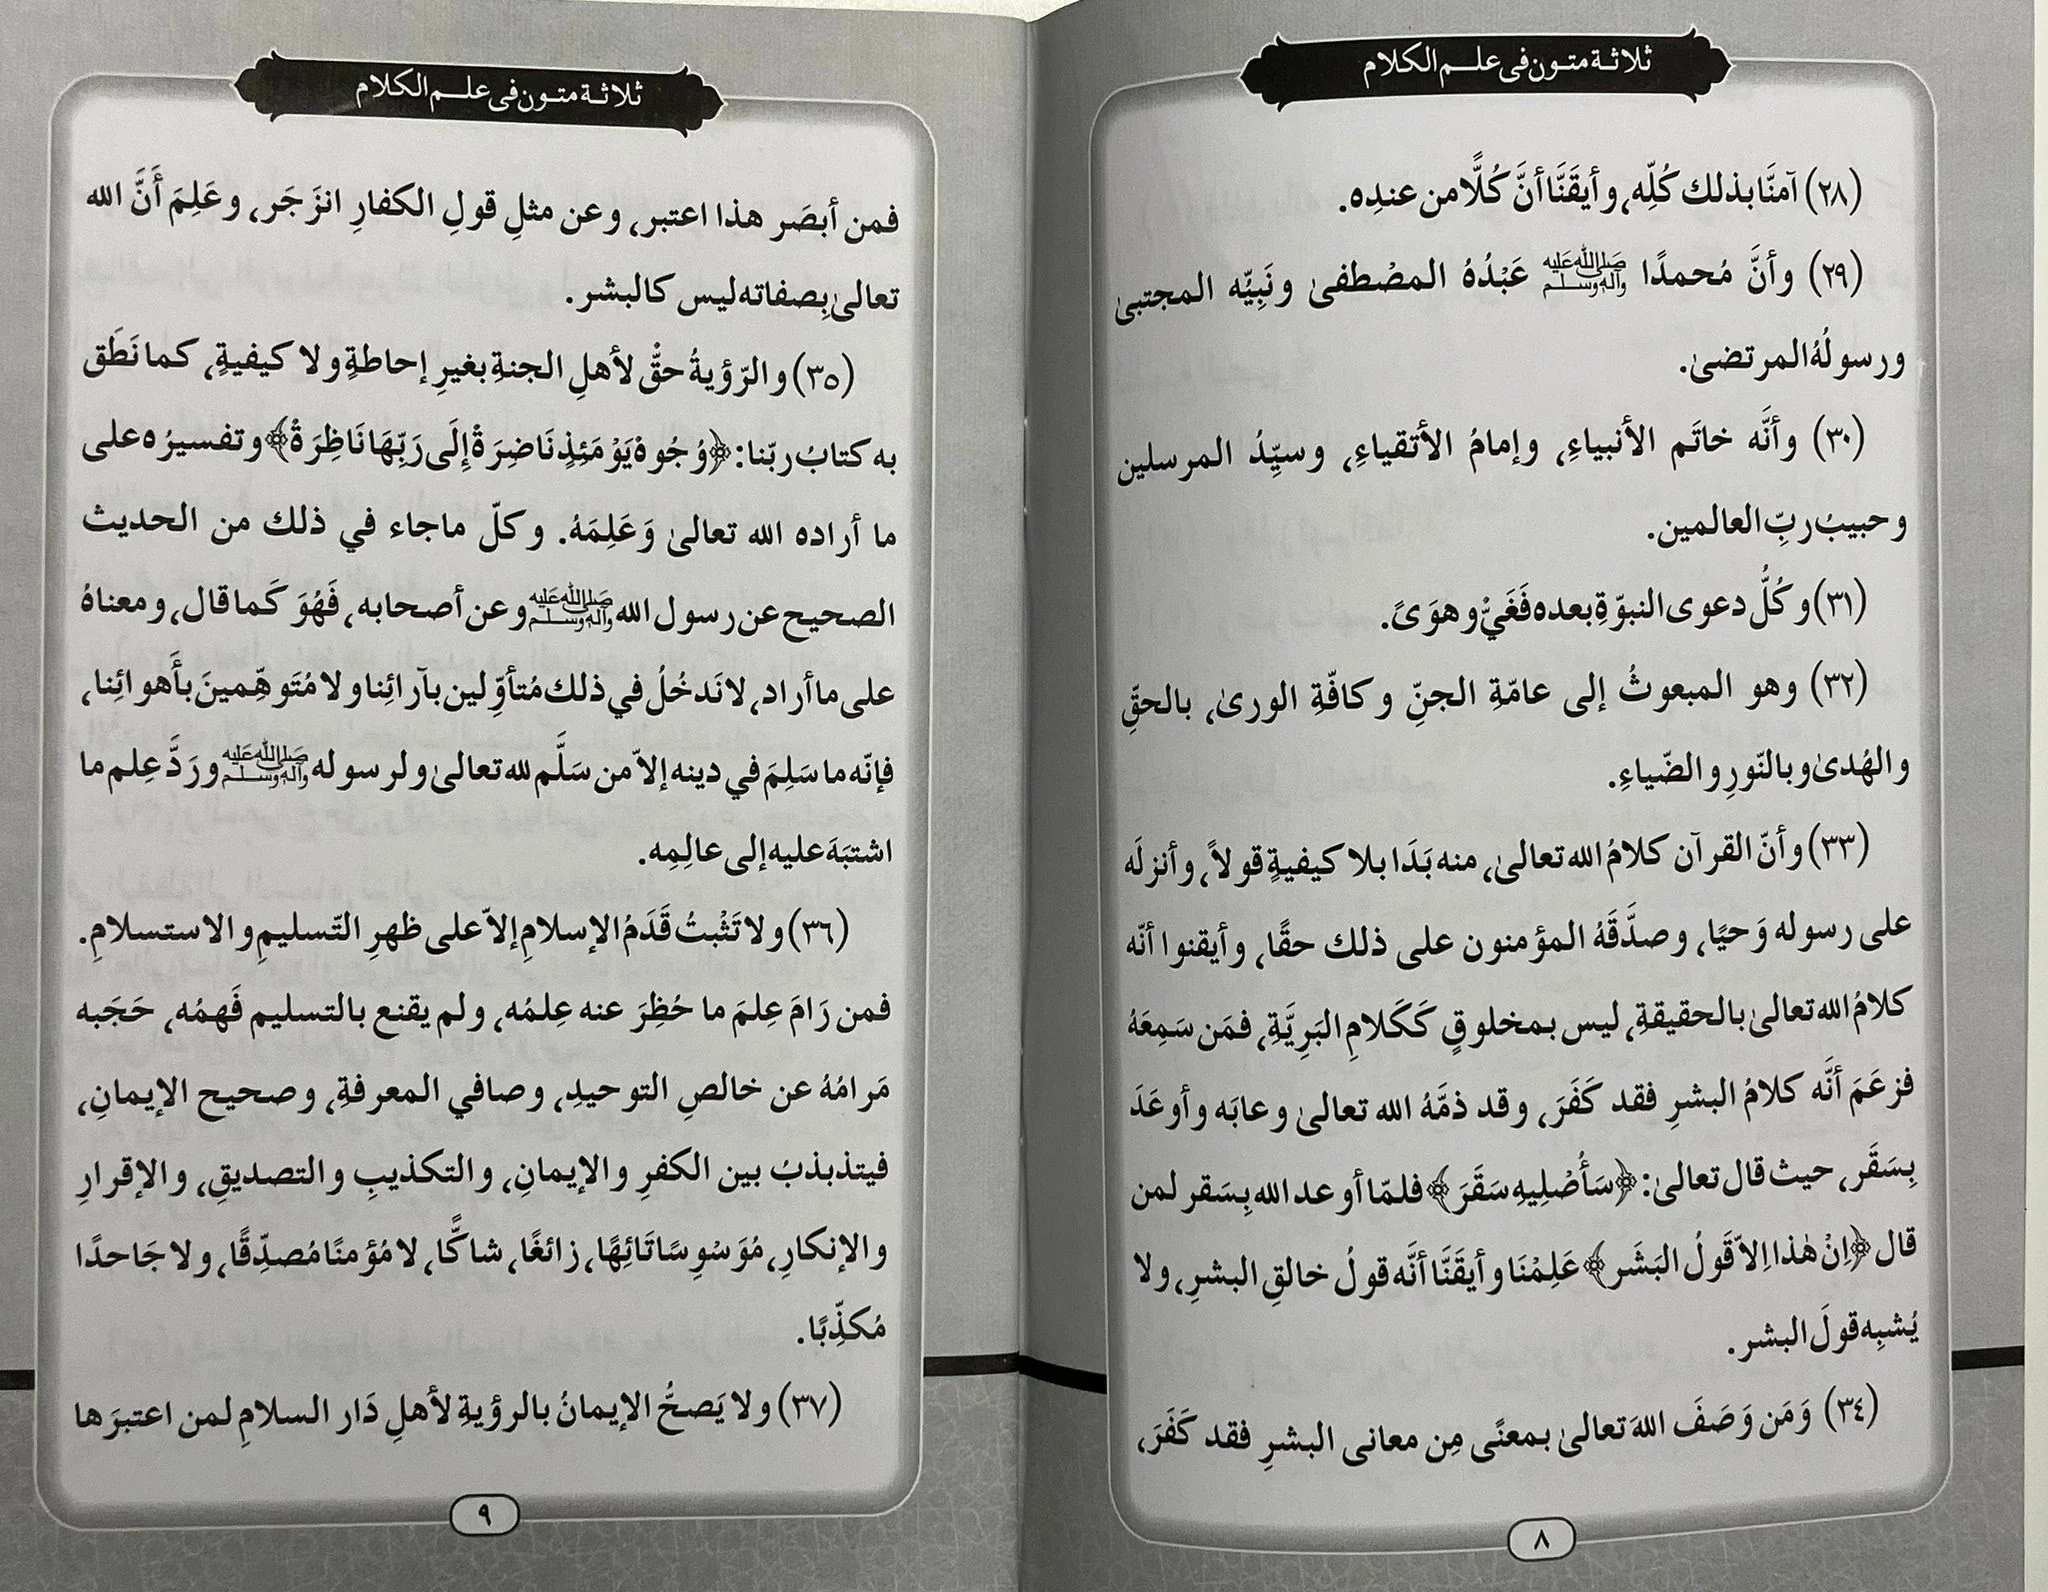 ثلاثة متون في علم الكلام
(٢٨) آمنَّا بذلك كُلِّه، وأيقَنَّا أنَّ كُلًّا من عندِه.
(٢٩) وأنَّ مُحمدًا ﷺ عَبْدُهُ المصْطفىٰ ونَبِيّه المجتبىٰ
ورسولُهُ المرتضىٰ.
(٣٠) وأنَّه خاتَم الأنبياءِ، وإمامُ الأتقياءِ، وسيِّدُ المرسلين
وحبيبُ ربِّ العالمين.
(٣١) وكُلُّ دعوى النبوّةِ بعده فَغَيٌّ وهوَىً.
(٣٢) وهو المبعوثُ إلى عامّةِ الجنِّ وكافّةِ الورىٰ، بالحقِّ
والهُدىٰ وبالنّورِ والضّياءِ.
(٣٣) وأنّ القرآن كلامُ الله تعالىٰ، منه بَدَا بلا كيفيةٍ قولاً، وأنزلَه
على رسوله وَحيًا، وصدَّقَهُ المؤمنون على ذلك حقًّا، وأيقنوا أنّه
كلامُ الله تعالىٰ بالحقيقةِ، ليس بمخلوقٍ كَكَلامِ البَرِيَّةِ، فمَن سَمِعَهُ
فزعَمَ أنَّه كلامُ البشرِ فقد كَفَرَ، وقد ذمَّهُ الله تعالىٰ وعابَه وأوعَدَ
بِسَقَر، حيث قال تعالىٰ: ﴿سَأُصْلِيهِ سَقَرَ﴾ فلمّا أوعد الله بِسَقر لمن
قال ﴿اِنْ هٰذا اِلاّ قَولُ البَشَر﴾ عَلِمْنَا وأيقَنَّا أنَّه قولُ خالقِ البشرِ، ولا
يُشبِه قولَ البشر.
(٣٤) وَمَن وَصَفَ اللهَ تعالىٰ بمعنًى مِن معانى البشرِ فقد كَفَرَ،
٨
ثلاثة متون في علم الكلام
فمن أبصَر هذا اعتبر، وعن مثلِ قولِ الكفارِ انزَجَر، وعَلِمَ أَنَّ الله
تعالىٰ بِصفاته ليس كالبشر.
(٣٥) والرّؤيةُ حقٌّ لأهلِ الجنةِ بغيرِ إحاطةٍ ولا كيفيةٍ، كما نَطَق
به كتابُ ربّنا: ﴿وُجُوهٌ يَوْمَئِذٍ نَاضِرَةٌ إِلَى رَبِّهَا نَاظِرَةٌ﴾ وتفسيرُه على
ما أراده الله تعالىٰ وَعَلِمَهُ. وكلّ ماجاء في ذلك من الحديث
الصحيح عن رسول الله ﷺ وعن أصحابه، فَهُوَ كَما قال، ومعناهُ
على ما أراد، لا نَدخُلُ في ذلك مُتأوِّلين بآرائِنا ولا مُتَوهِّمينَ بأَهوائِنا،
فإنّه ما سَلِمَ في دينه إلاّ من سَلَّم لله تعالىٰ ولرسوله ﷺ ورَدَّ عِلم ما
اشتبَهَ عليه إلى عالِمِه.
(٣٦) ولا تَثْبتُ قَدَمُ الإسلامِ إلاّ على ظهرِ التّسليمِ والاستسلامِ.
فمن رَامَ عِلمَ ما حُظِرَ عنه عِلمُه، ولم يقنع بالتسليم فَهمُه، حَجَبه
مَرامُهُ عن خالصِ التوحيدِ، وصافي المعرفةِ، وصحيح الإيمانِ،
فيتذبذبُ بين الكفرِ والإيمانِ، والتكذيبِ والتصديقِ، والإقرارِ
والإنكارِ، مُوَسْوِسًا تَائِهًا، زائغًا، شاكًّا، لا مُؤمنًا مُصدِّقًا، ولا جَاحدًا
مُكذِّبًا.
(٣٧) ولا يَصحُّ الإيمانُ بالرؤيةِ لأهلِ دَار السلامِ لمن اعتبرَها
٩